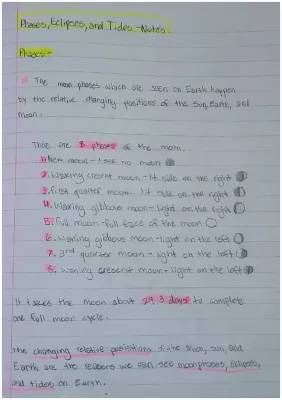 Phases, Eclipses, and Tides - Notes
Phases -
The moon phases which are seen on Earth happen
by the relative changing positions of the Sun, Earth, and
moon.
There are 8 phases of the moon.
1. New moon - I see no moon
2. Waxing cresent moon - lit side on the right
3. First quarter moon - lit side on the right
4. Waxing gibbove moon - light on the right
5. Full moon - full face of the moon
6. Waning gibbove moon - light on the left
7. 3rd quarter moon - light on the left
8. Waning crescent moon - light on the left
It takes the moon about 29.3 days to complete
one full moon cycle.
The changing relative positions of the moon, sun, and
Earth are the reasons we can see moonphases, eclipses,
and tides on Earth.